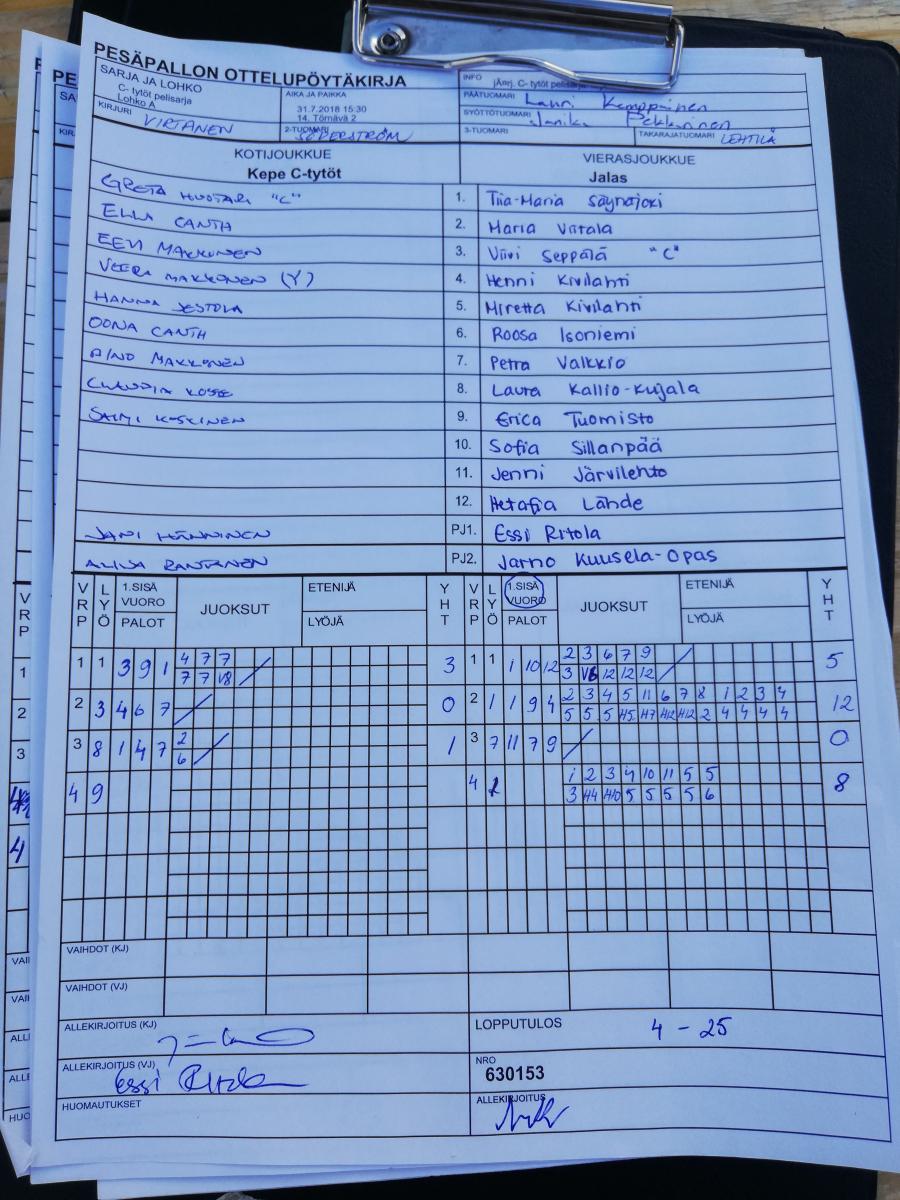 PESÄPALLON OTTELUPÖYTÄKIRJA
SARJA JA LOHKO
C- tytöt pelisarja
Lohko A
AIKA JA PAIKKA
31.7.2018 15:30
14, Törnävä 2
INFO
jÄnrj. C- tytöt pelisarja
PÄÄTUOMARI Lauri Kemppainen
SYÖTTÖTUOMARI Janika Pekkarinen
KIRJURI VIRTANEN
2-TUOMARI SÖDERSTRÖM
3-TUOMARI
TAKARAJATUOMARI LEHTILÄ
KOTIJOUKKUE VIERASJOUKKUE
Kepe C-tytöt Jalas
GRETA HUOTARI "C" 1. Tiia-Maria Säynäjoki
ELLA CANTH 2. Maria Viitala
EEVI MAKKONEN 3. Viivi Seppälä "C"
VEERA MAKKONEN (Y) 4. Henni Kivilahti
HANNA 5. Miretta Kivilahti
OONA CANTH 6. Roosa Isoniemi
AINO MAKKONEN 7. Petra Valkkio
CLAUDIA 8. Laura Kallio-Kujala
SAIMI KOSKINEN 9. Erica Tuomisto
10. Sofia Sillanpää
11. Jenni Järvilehto
12. Lähde
JANI HÄNNINEN PJ1. Essi Ritola
ALINA RANTANEN PJ2. Jarno Kuusela-Opas
VRP LYÖ 1.SISÄ VUORO PALOT JUOKSUT ETENIJÄ LYÖJÄ YHT VRP LYÖ 1.SISÄ VUORO PALOT JUOKSUT ETENIJÄ LYÖJÄ YHT
4 7 7 2 3 6 7 9
1 1 3 9 1 3 1 1 1 10 12 5
7 7 V8 3 V6 12 12 12
2 3 4 5 11 6 7 8 1 2 3 4
2 3 4 6 7 0 2 1 1 9 4 12
5 5 5 H5 H7 H12 H12 2 4 4 4 4
2
3 8 1 4 7 1 3 7 11 7 9 0
6
1 2 3 4 10 11 5 5
4 9 4 8
3 H4 H10 5 5 5 5 6
VAIHDOT (KJ)
VAIHDOT (VJ)
ALLEKIRJOITUS (KJ)
LOPPUTULOS 4 - 25
ALLEKIRJOITUS (VJ) Essi Ritola
NRO
630153
HUOMAUTUKSET
ALLEKIRJOITUS